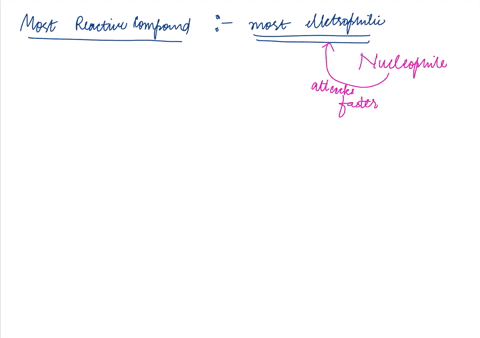 Most Reactive Compound :- most electrophilic
Nucleophile
attacks
faster